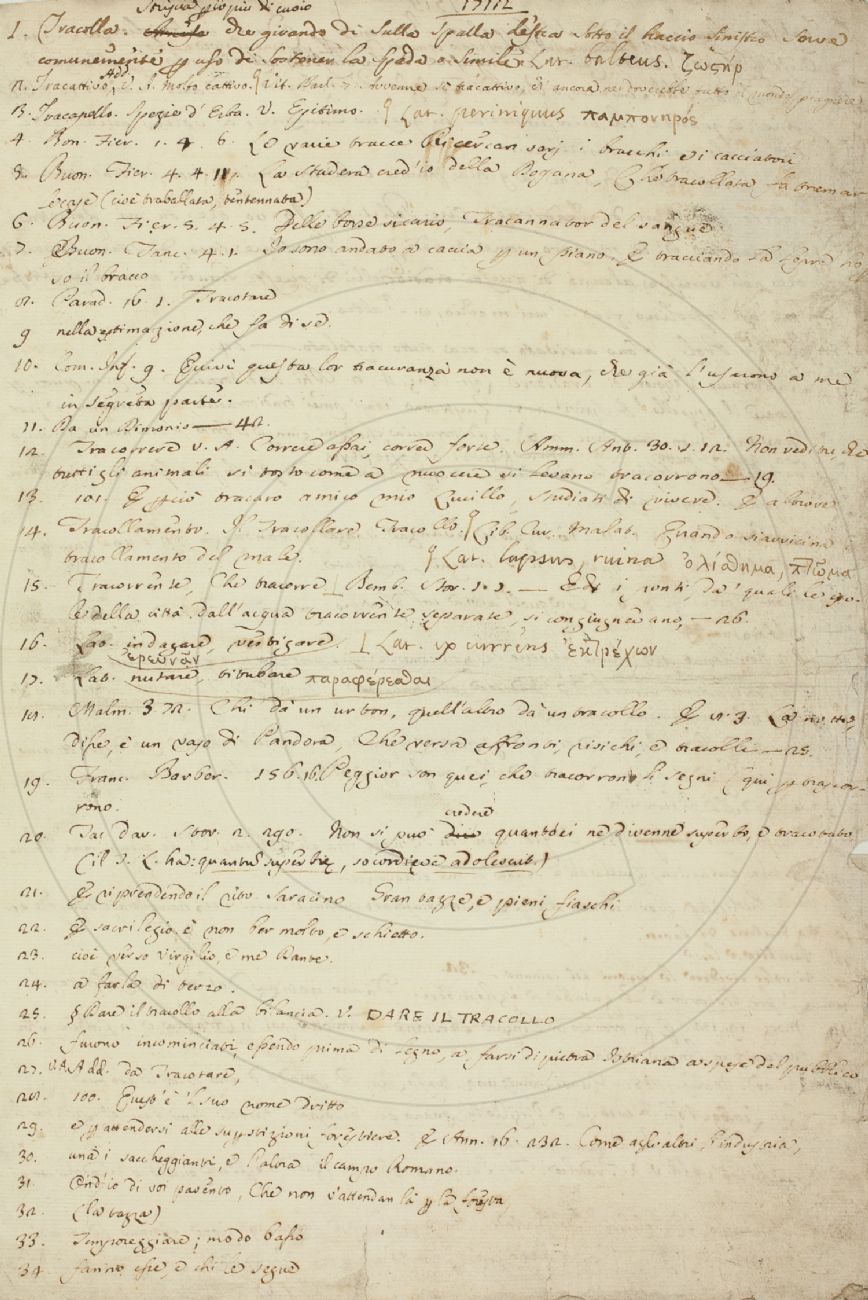 Striscia per lo più di cuoio
1. Tracolla. che girando di sulla spalla destra sotto il braccio sinistro serve
comunemente p uso di sostener la spada o simile. Lat. balteus. ζωςήρ
2. Tracattivo, Add. V. A. Molto cattivo. Vit. divenne sì tracattivo, tutto il mondo
3. Tracapello. Spezie d'Erba. V. Epitimo. § Lat. periniquus παμπονηρός
4. Bon. Fier. 1. 4. 6. Le varie tracce Ricercan varj i bracchi, e i cacciatori
5. Buon. Fier. 4. 4. La stadera cred'io della Dogana, Che tracollata fa tremar
le case (cioè traballata, tentennata)
6. Buon. Fier. 5. 4. 5. Delle borse sicario, Tracannator del sangue
7. Buon. Tanc. 4. 1. Io sono andato a caccia p un piano, E tracciando la lepre ho
so il bracco
8. Parad. 16. 1. Tracotare
9 nella estimazione, che fa di se.
10. Com. Inf. 9. Quivi questa lor tracuranza non è nuova, che già l'usarono a me
in segreta parte.
11. Da un Dimonio — 42.
12. Tracorrere V. A. Correre assai, correr forte. Amm. Ant. 30. 2. 12. Non vedi tu, che
tutti gli animali si tosto come a nuocere si levano tracorrono — 19.
13. 101. E pciò tracaro amico mio Lucillo, studiati di vivere. E altrove
14. Tracollamento. Il Tracollare. Tracollo. § Lib. Cur. Malat. Quando s'avvicina il
tracollamento del male. § Lat. lapsus, ruina ὀλίσθημα, πτῶμα
15. Tracorrente, Che tracorre Bemb. Stor. — Ed i ponti, da' quali le
le della città dall'acqua tracorrente separate, si congiugneano, — 26.
16. Lat. indagare, vestigare. Lat. excurrens ἐκτρέχων
ἐρευνᾶν
17. Lat. nutare, titubare παραφέρεσθαι
18. Malm. 3. 72. Chi dà un urton, quell'altro dà un tracollo. E La notte,
disse, è un vaso di Pandora, Che versa affronti, risichi, e tracolli — 25.
19. Franc. Barber. 156. 16. Peggior son quei, che tracorrono li segni (qui p trascor-
rono.
credere
20. Tac. Dav. Stor. 2. 290. Non si può quant'ei ne divenne superbo, e tracotato
(il T. L. ha: quantum superbiæ, socordiæque adoleverit.)
21. E riprendendo il rito Saracino Gran tazze, e pieni fiaschi
22. E sacrilegio è non ber molto, e schietto.
23. cioè verso Virgilio, e me Dante.
24. a farla di terzo.
25. § Dare il tracollo alla bilancia. V. DARE IL TRACOLLO
26. furono incominciati, essendo prima di legno, a farsi di pietra Istriana a spese del pubblico
27. V. A. Add. da Tracotare,
28. 100. Quest'è 'l suo nome dritto
29. e p attendersi alle superstizioni forestiere. E Ann. 16. 232. Come agli altri l'industria,
30. una i saccheggianti, e l'altra il campo Romano.
31. Ond'io di voi pavento, Che non s'attendan là p la foresta
32. (la tazza)
33. Temporeggiare; modo basso
34. fanno esse, e chi le segue